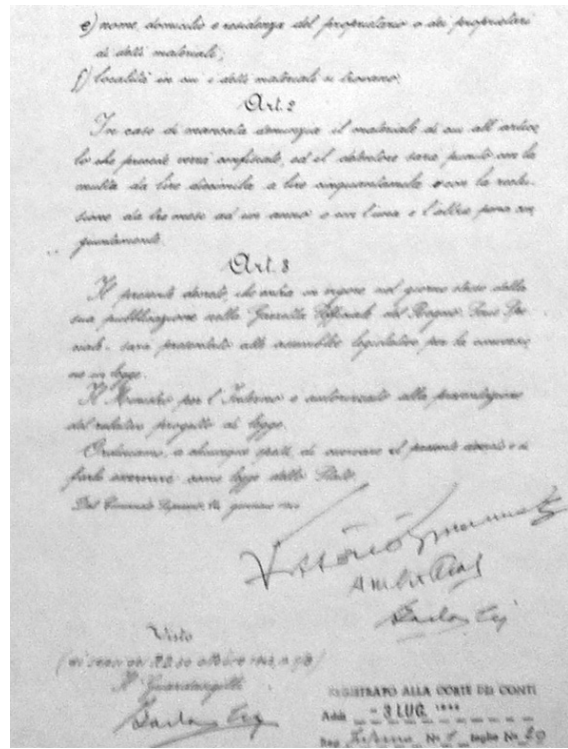 e) nome, domicilio e residenza del proprietario o dei proprietari
di detti materiali;
f) località in cui i detti materiali si trovano.
Art. 2
In caso di mancata denunzia il materiale di cui all'artico
lo che precede verrà confiscato, ed il detentore sarà punito con la
multa da lire diecimila a lire cinquantamila o con la reclu-
sione da tre mesi ad un anno o con l'una e l'altra pena con
giuntamente.
Art. 3
Il presente decreto, che entra in vigore nel giorno stesso della
sua pubblicazione nella Gazzetta Ufficiale del Regno, Serie Spe-
ciale, sarà presentato alle assemblee legislative per la conversio
ne in legge.
Il Ministro per l'Interno è autorizzato alla presentazione
del relativo progetto di legge.
Ordiniamo, a chiunque spetti, di osservare il presente decreto e di
farlo osservare come legge dello Stato.
Dal Comando Supremo, gennaio
Vittorio Emanuele
Visto
Il Guardasigilli
REGISTRATO ALLA CORTE DEI CONTI
Addì - 3 LUG. 1944
Reg. Interno N° foglio N° 20